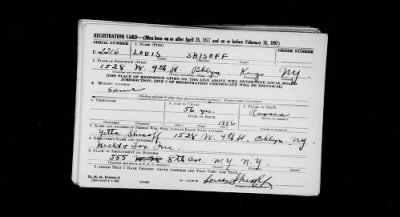 REGISTRATION CARD—(Men born on or after April 28, 1877 and on or before February 16, 1897)
SERIAL NUMBER 1. NAME (Print) ORDER NUMBER
U 2216 LOUIS SHISOFF
2. PLACE OF RESIDENCE (Print)
1528 W. 9th St. Bklyn Kings NY
[THE PLACE OF RESIDENCE GIVEN ON THE LINE ABOVE WILL DETERMINE LOCAL BOARD
JURISDICTION; LINE 2 OF REGISTRATION CERTIFICATE WILL BE IDENTICAL]
3. MAILING ADDRESS
Same
4. TELEPHONE 5. AGE IN YEARS 6. PLACE OF BIRTH
56 yrs.
DATE OF BIRTH Russia
1886
7. NAME AND ADDRESS OF PERSON WHO WILL ALWAYS KNOW YOUR ADDRESS
Yetta Shisoff 1528 W. 9th St. Bklyn, Ny.
8. EMPLOYER'S NAME AND ADDRESS
Inc.
9. PLACE OF EMPLOYMENT OR BUSINESS
555 8th Ave. N.Y. N.Y.
I AFFIRM THAT I HAVE VERIFIED ABOVE ANSWERS AND THAT THEY ARE TRUE.
D. S. S. Form 1
Louis Shisoff